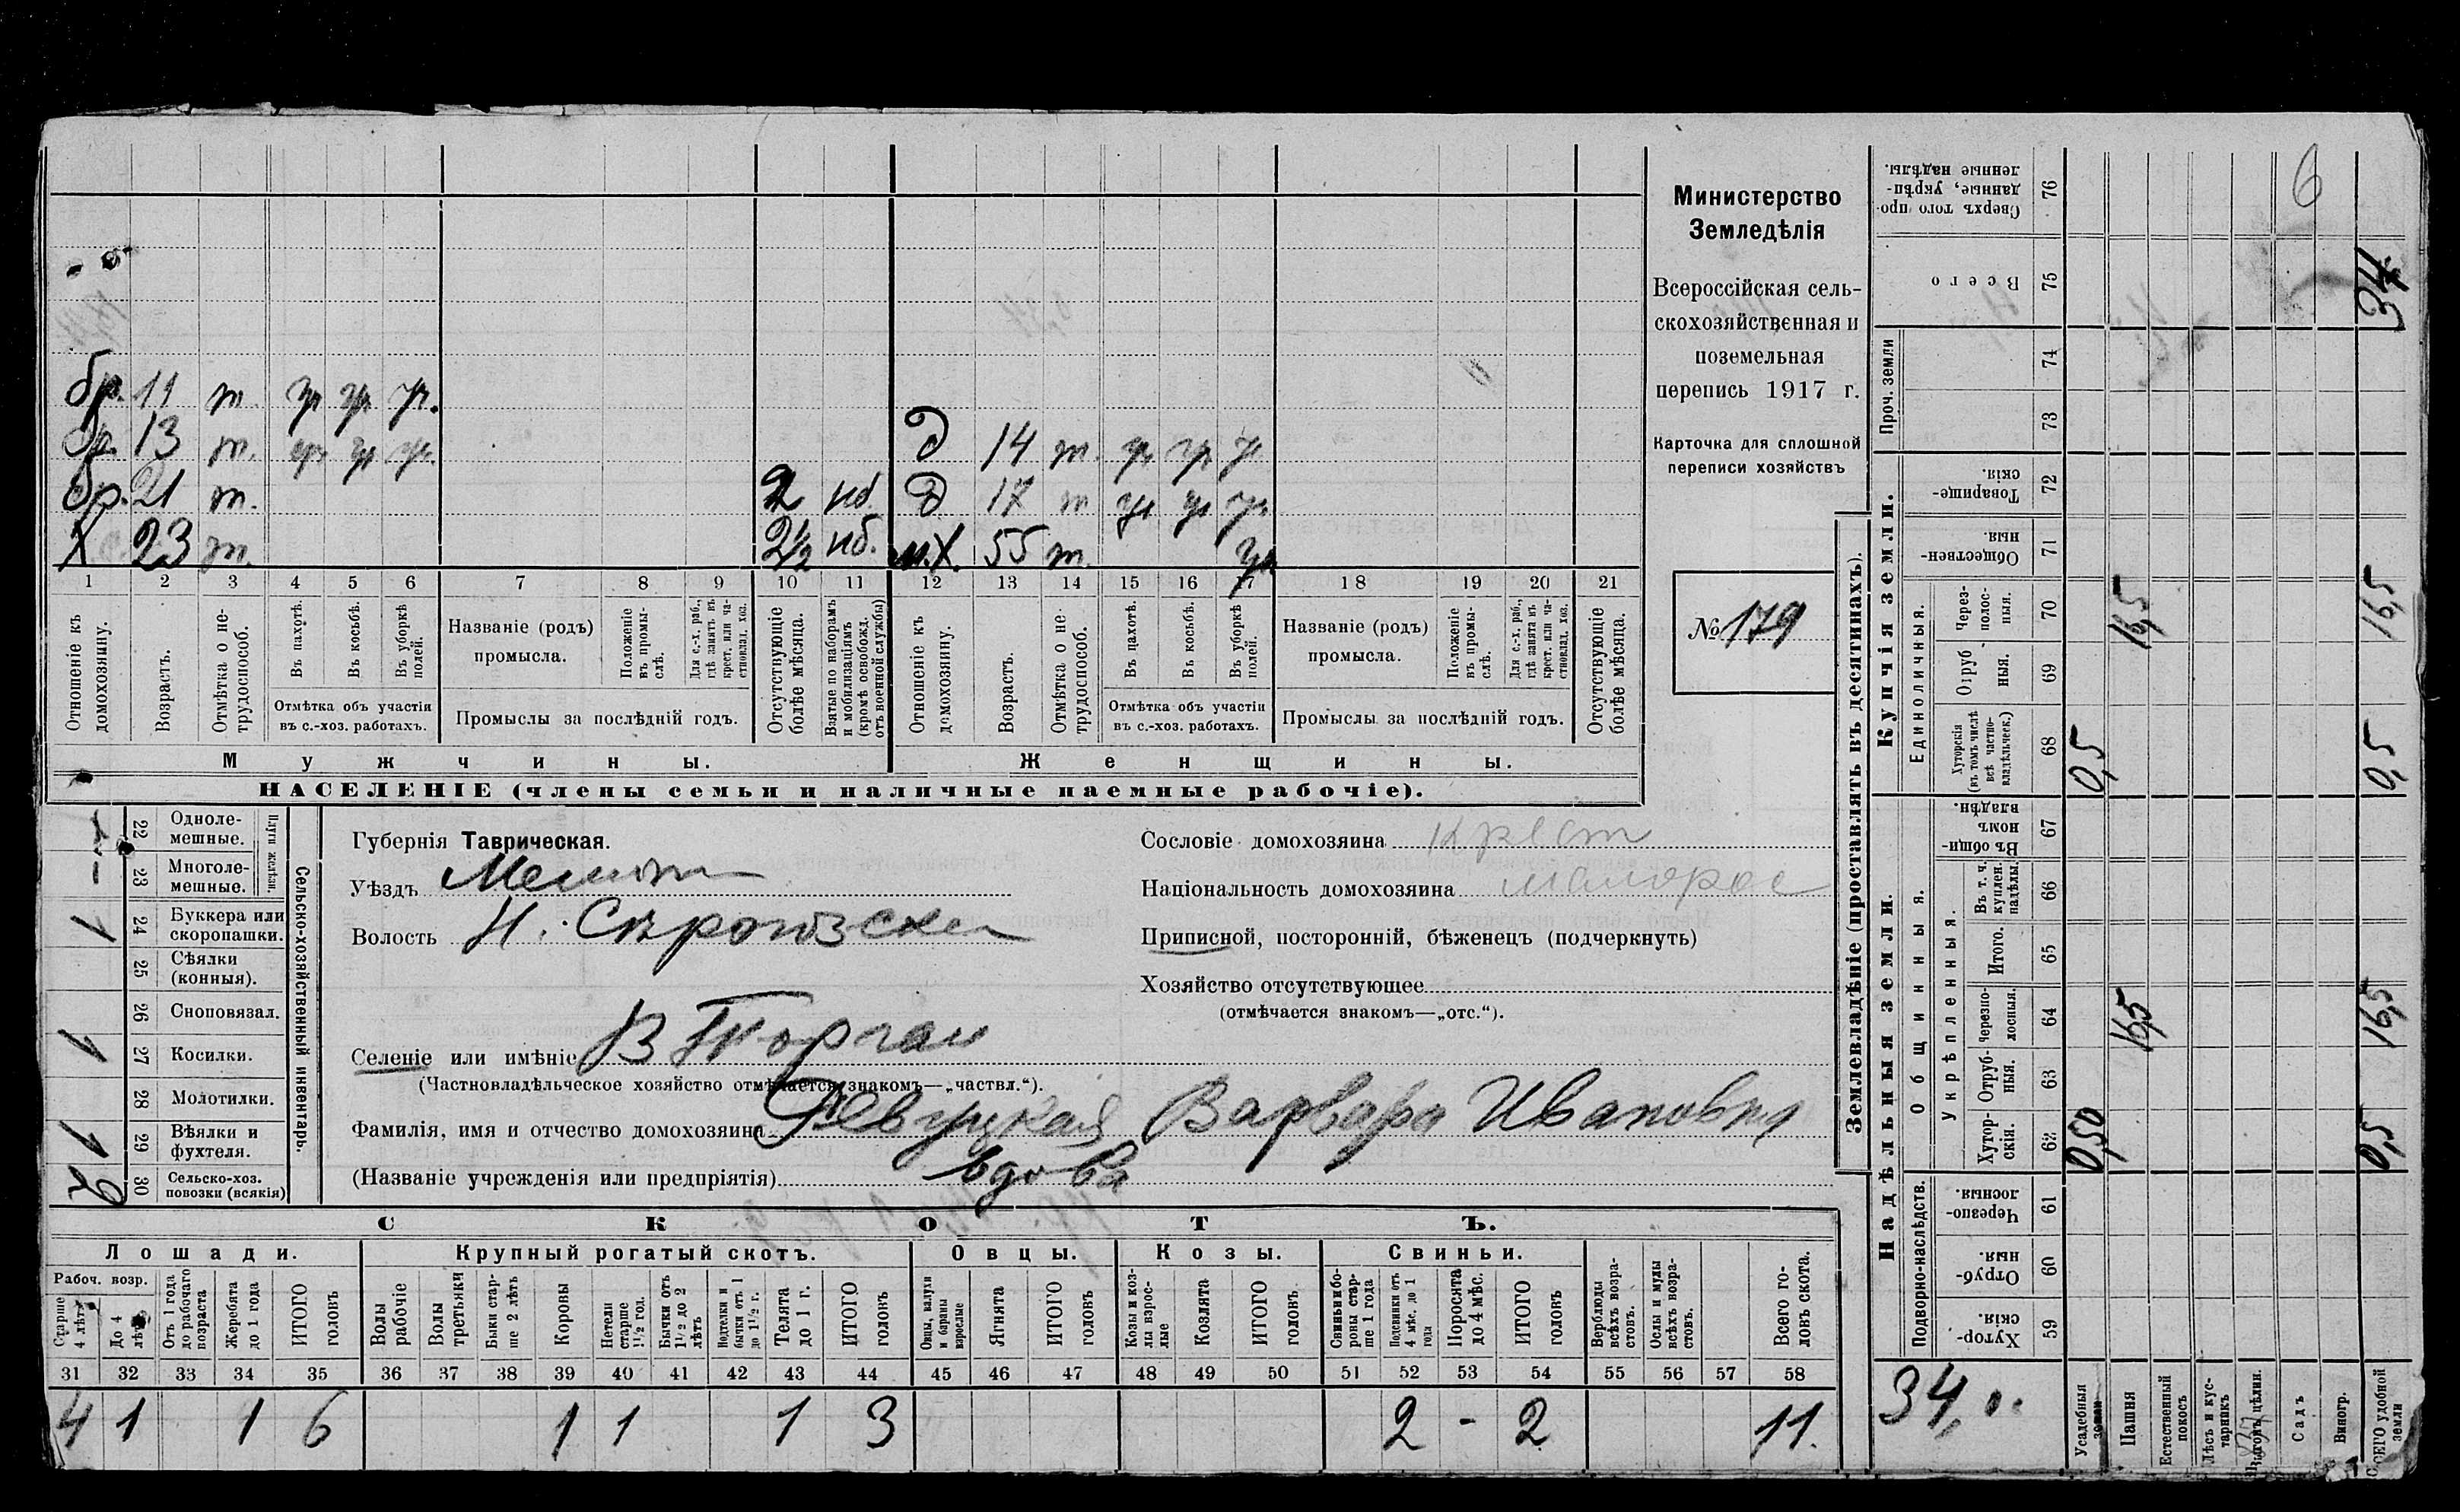 бр. 11 т. ур ур ур.
бр. 13 т. ур. ур ур. д 14 т. ур ур ур
бр. 21 т. 2 нб. д 17 т ур ур ур
Х 23 т. 2½ нб. м.Х. 55 т. ур
1 2 3 4 5 6 7 8 9 10 11 12 13 14 15 16 17 18 19 20 21
Отношеніе къ домохозяину.
Возрастъ.
Отмѣтка о не-трудоспособ.
Въ пахотѣ.
Въ косьбѣ.
Въ уборкѣ полей.
Отмѣтка объ участіи въ с.-хоз. работахъ.
Названіе (родъ) промысла.
Положеніе въ промы-слѣ.
Для с.-х. раб., гдѣ занятъ въ крест. или ча-стновлад. хоз.
Промыслы за послѣдній годъ.
Отсутствующіе болѣе мѣсяца.
Взятые по наборамъ и мобилизаціямъ (кромѣ освобожд. отъ военной службы)
Отношеніе къ домохозяину.
Возрастъ.
Отмѣтка о не-трудоспособ.
Въ пахотѣ.
Въ косьбѣ.
Въ уборкѣ полей.
Отмѣтка объ участіи въ с.-хоз. работахъ.
Названіе (родъ) промысла.
Положеніе въ промы-слѣ.
Для с.-х. раб., гдѣ занята въ крест. или ча-стновлад. хоз.
Промыслы за послѣдній годъ.
Отсутствующіе болѣе мѣсяца.
Мужчины. Женщины.
НАСЕЛЕНІЕ (члены семьи и наличные наемные рабочіе).
Министерство
Земледѣлія
Всероссійская сель-
скохозяйственная и
поземельная
перепись 1917 г.
Карточка для сплошной
переписи хозяйствъ
№ 179
Сельско-хозяйственный инвентарь.
Плуги желѣзн.
22 Одноле-мешные. —
23 Многоле-мешные. —
24 Буккера или скоропашки. 1
25 Сѣялки (конныя).
26 Сноповязал.
27 Косилки. 1
28 Молотилки.
29 Вѣялки и фухтеля. 1
30 Сельско-хоз. повозки (всякія) 2
Губернія Таврическая.
Уѣздъ Мелитоп
Волость Н. Сѣрогозская
Селеніе или имѣніе В Торгаи
(Частновладѣльческое хозяйство отмѣчается знакомъ—„частвл.“).
Фамилія, имя и отчество домохозяина Левуцкая Варвара Ивановна
(Названіе учрежденія или предпріятія) вдова
Сословіе домохозяина крест
Національность домохозяина малорос
Приписной, посторонній, бѣженецъ (подчеркнуть)
Хозяйство отсутствующее
(отмѣчается знакомъ—„отс.“).
СКОТЪ.
Лошади. Крупный рогатый скотъ. Овцы. Козы. Свиньи.
Рабоч. возр.
Старше 4 лѣтъ
До 4 лѣтъ
Отъ 1 года до рабочаго возраста
Жеребята до 1 года
ИТОГО головъ
Волы рабочіе
Волы третьяки
Быки стар-ше 2 лѣтъ
Коровы
Нетели старше 1½ год.
Бычки отъ 1½ до 2 лѣтъ
Подтелки и бычки отъ 1 до 1½ г.
Телята до 1 г.
ИТОГО головъ
Овцы, валухи и бараны взрослые
Ягнята
ИТОГО головъ
Козы и коз-лы взрос-лые
Козлята
ИТОГО головъ
Свиньи и бо-ровы стар-ше 1 года
Подсвинки отъ 4 мѣс. до 1 года
Поросята до 4 мѣс.
ИТОГО головъ
Верблюды всѣхъ возра-стовъ.
Ослы и мулы всѣхъ возра-стовъ.
Всего го-ловъ скота.
31 32 33 34 35 36 37 38 39 40 41 42 43 44 45 46 47 48 49 50 51 52 53 54 55 56 57 58
4 1 1 6 1 1 1 3 2 - 2 11.
Землевладѣніе (проставлять въ десятинахъ).
Купчія земли.
Надѣльныя земли.
Сверхъ того про-данные, укрѣп-ленные надѣлы. 76 6
Всего 75 34
Проч. земли 74
73
Товарище-скія. 72
Обществен-ныя. 71
Единоличныя.
Через-полос-ныя. 70 16,5 16,5
Отруб ныя. 69
Хуторскія (въ томъ числѣ всѣ частно-владѣльческ.) 68 0,5 0,5
Общинныя.
Въ общин-номъ владѣн. 67
Укрѣпленныя.
Въ т. ч. куплен. надѣлы. 66
Итого. 65
Черезпо-лосныя. 64 16,5 16,5
Отруб-ныя. 63
Хутор-скія. 62 0,50 0,5
Подворно-наслѣдств.
Черезпо-лосныя. 61
Отруб-ныя. 60
Хутор-скія. 59
34,
Усадебныя земли
Пашня
Естественный покосъ
Лѣсъ и кус-тарникъ
Выгонъ цѣлин.
Садъ
Виногр.
ВСЕГО удобной земли